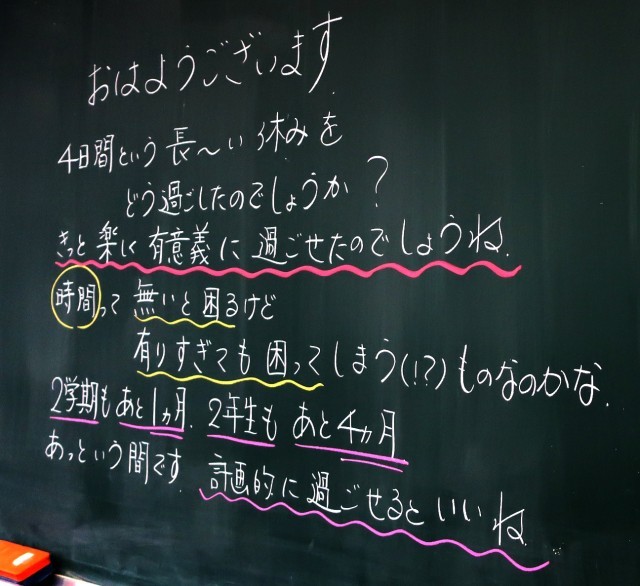 おはようございます.
4日間という長〜い休みを
どう過ごしたのでしょうか?
きっと楽しく有意義に過ごせたのでしょうね.
時間って無いと困るけど
有りすぎても困ってしまう(!?)ものなのかな.
2学期もあと1ヵ月.2年生もあと4ヵ月
あっという間です.計画的に過ごせるといいね.